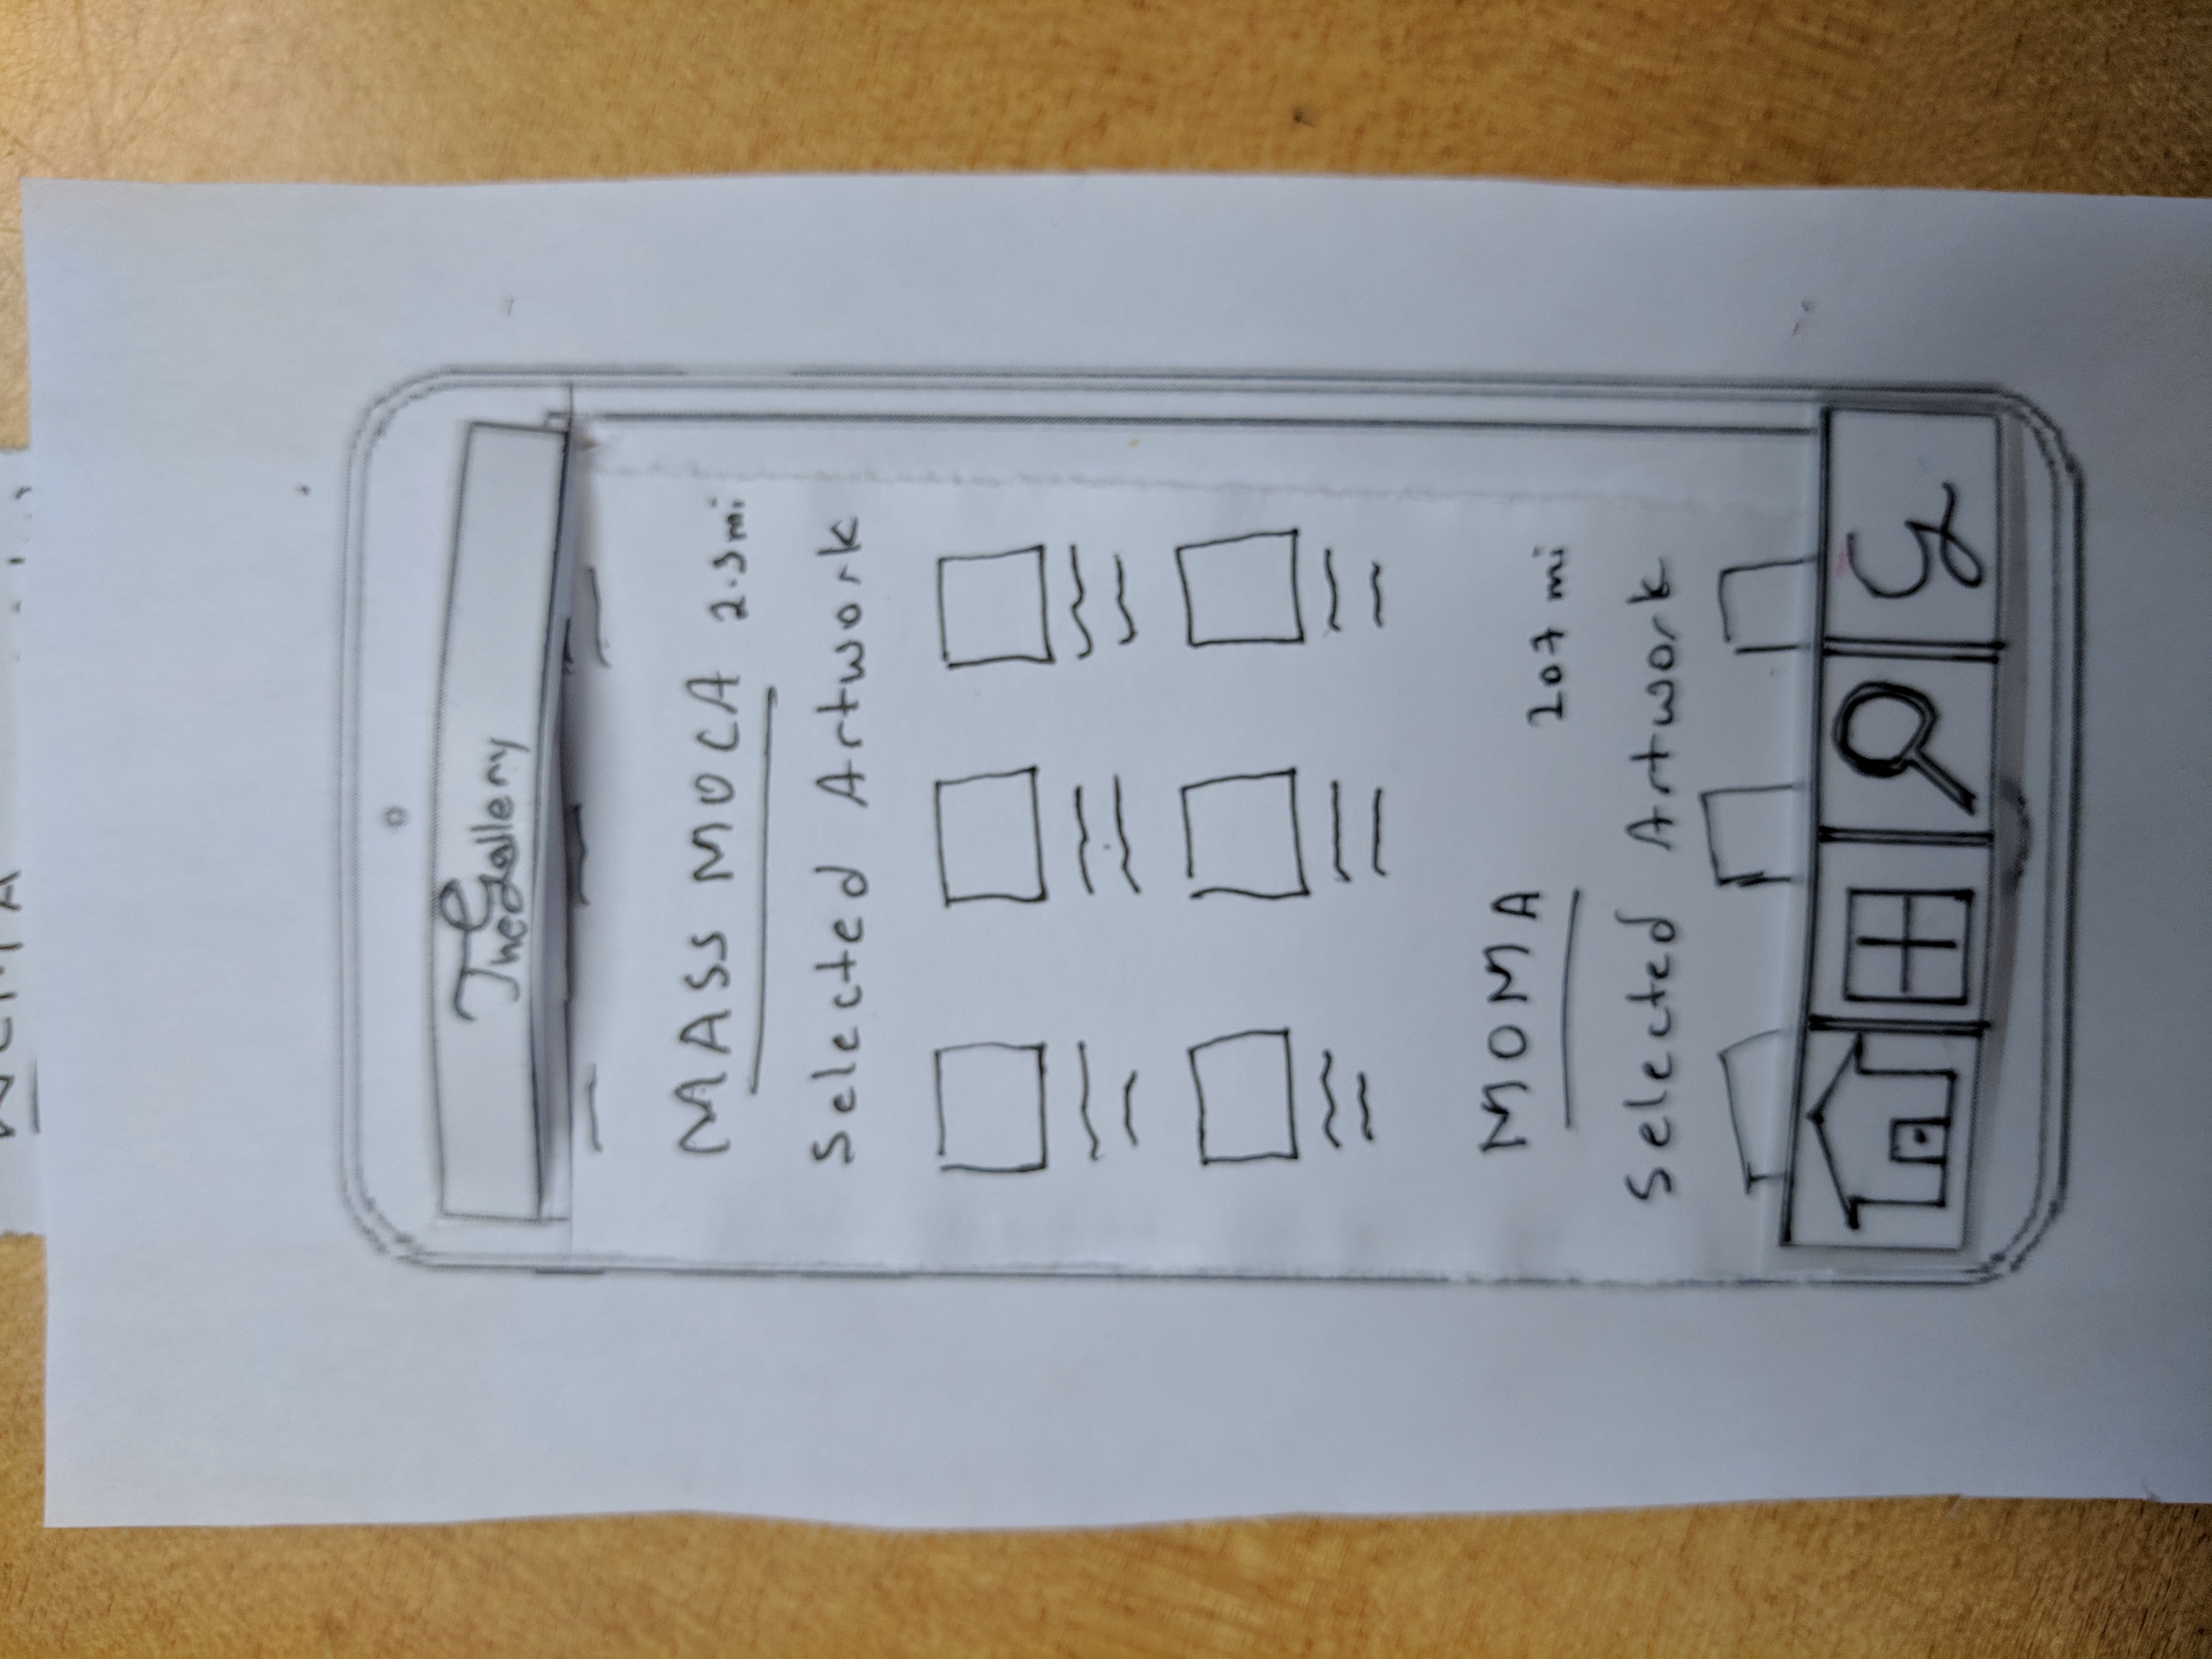 The Gallery
MASS MOCA 2.5mi
Selected Artwork
MOMA 207 mi
Selected Artwork